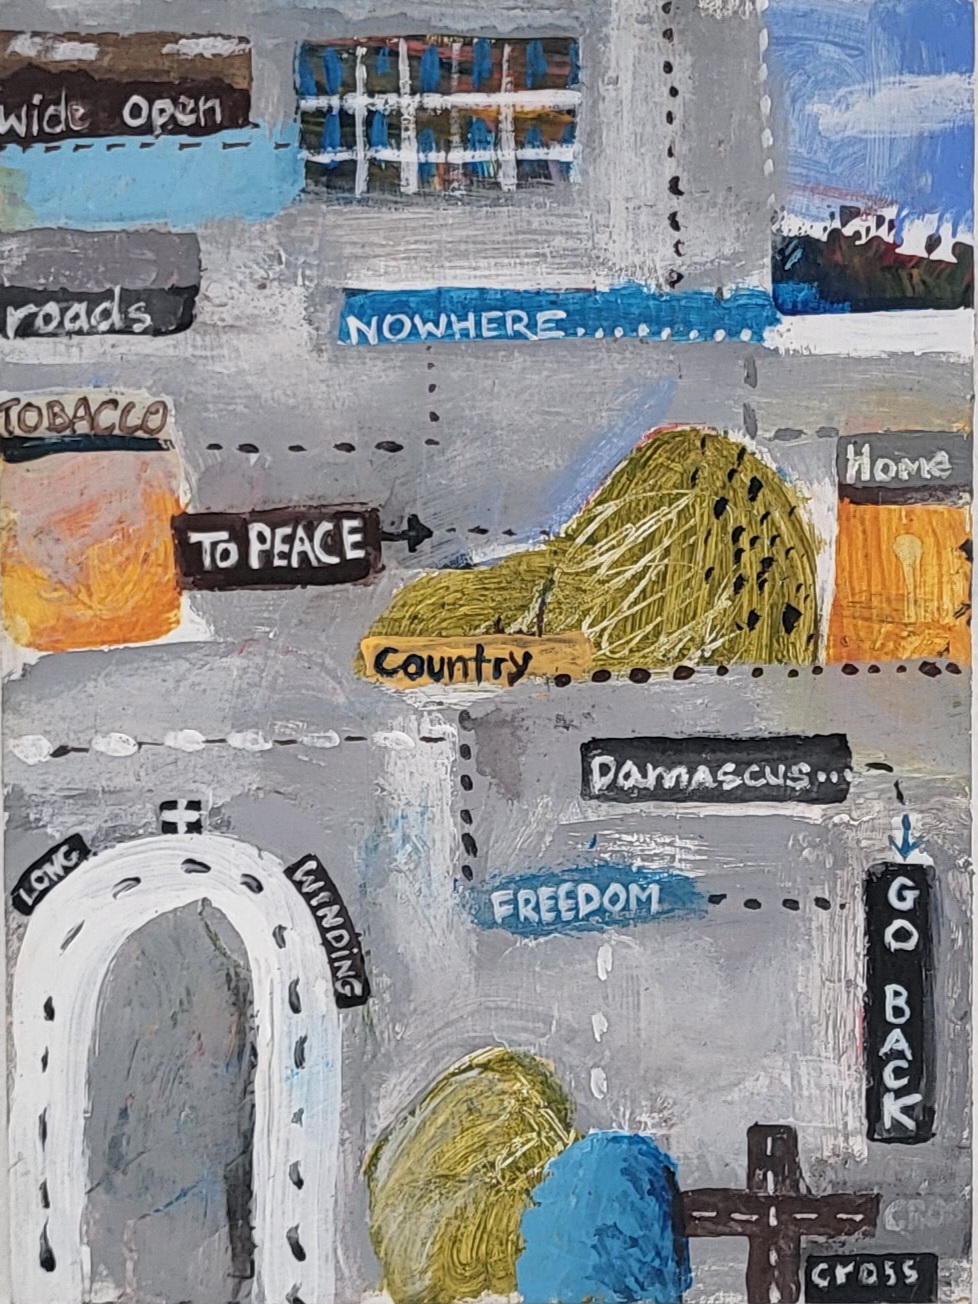 wide open
roads
NOWHERE.........
TOBACCO
Home
TO PEACE
Country
Damascus...
LONG
WINDING
FREEDOM
GO BACK
CRO
cross